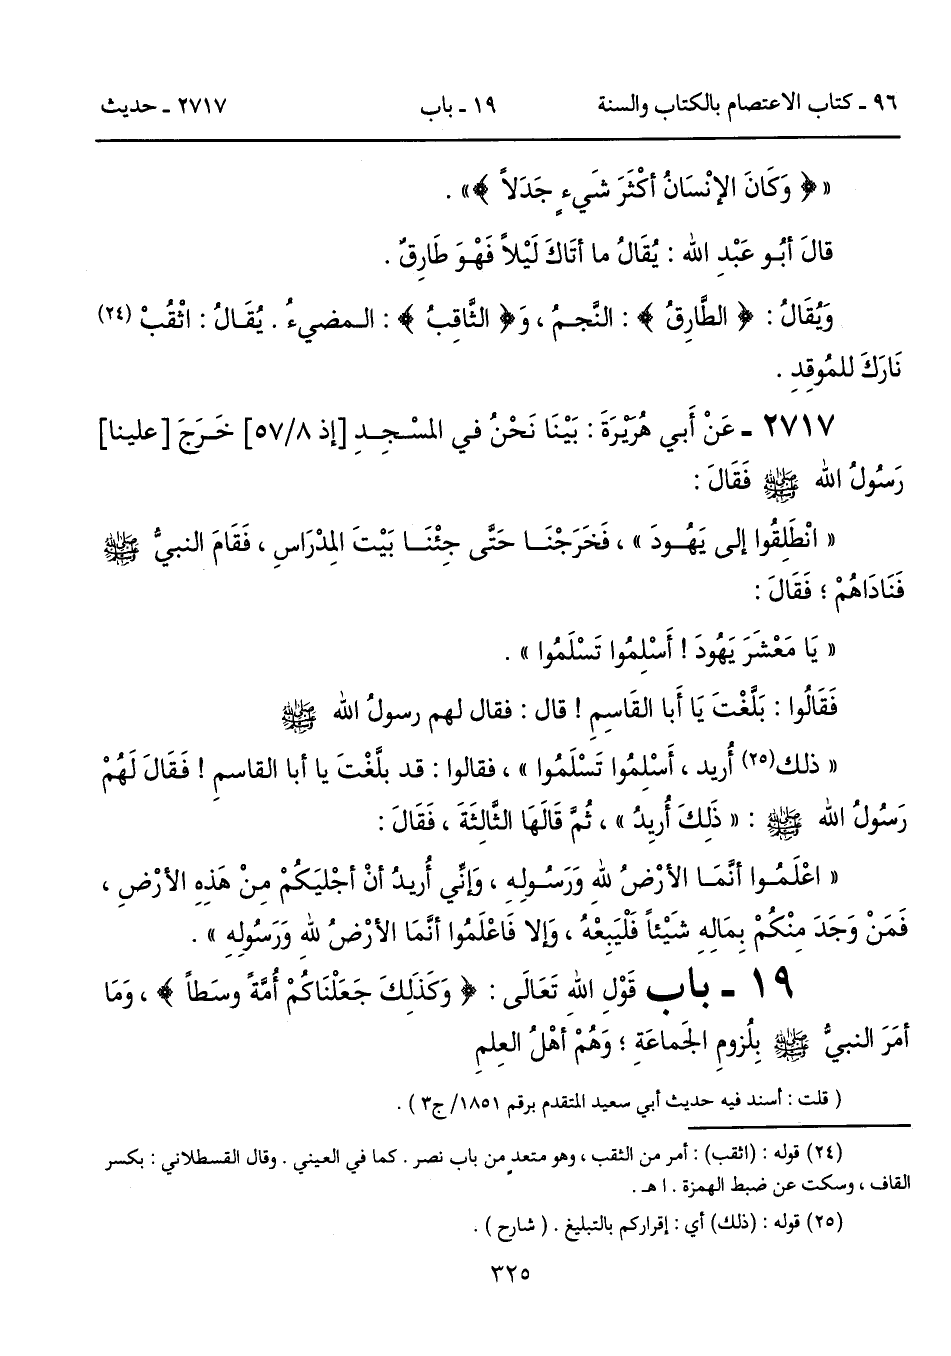 ٩٦ ـ كتاب الاعتصام بالكتاب والسنة ١٩ ـ باب ٢٧١٧ ـ حديث
« ﴿ وَكَانَ الإنْسَانُ أكْثَرَ شَيْءٍ جَدَلاً ﴾» .
قالَ أبُو عَبْدِ الله : يُقَالُ ما أتَاكَ لَيْلاً فَهْوَ طَارِقٌ .
وَيُقَالُ : ﴿ الطَّارِقُ ﴾ : النَّجمُ ، وَ﴿ الثَّاقِبُ ﴾ : المضيءُ . يُقَالُ : اثْقُبْ (٢٤)
نَارَكَ للمُوقِدِ .
٢٧١٧ ـ عَنْ أَبي هُرَيْرَةَ : بَيْنَا نَحْنُ في المسْجِدِ [إذ ٥٧/٨] خَرَجَ [علينا]
رَسُولُ الله ﷺ فَقَالَ :
« انْطَلِقُوا إلى يَهُودَ » ، فَخَرَجْنَا حَتَّى جِئْنَا بَيْتَ المِدْرَاسِ ، فَقَامَ النبيُّ ﷺ
فَنَادَاهُمْ ؛ فَقَالَ :
« يَا مَعْشَرَ يَهُودَ ! أَسْلِمُوا تَسْلَمُوا » .
فَقَالُوا : بَلَّغْتَ يَا أَبا القَاسِمِ ! قال : فقال لهم رسولُ الله ﷺ
« ذلك(٢٥) أُريد ، أَسْلِمُوا تَسْلَمُوا » ، فقالوا : قد بلَّغْتَ يا أبا القاسمِ ! فَقَالَ لَهُمْ
رَسُولُ الله ﷺ : « ذَلِكَ أُرِيدُ » ، ثُمَّ قَالَهَا الثَّالِثَةَ ، فَقَالَ :
« اعْلَمُوا أنَّمَا الأرْضُ للهِ وَرَسُولِهِ ، وَإنِّي أُرِيدُ أنْ أجْلِيَكُمْ مِنْ هَذِهِ الأرْضِ ،
فَمَنْ وَجَدَ مِنْكُمْ بِمَالِهِ شَيْئاً فَلْيَبِعْهُ ، وَإلا فَاعْلَمُوا أنَّمَا الأرْضُ للهِ وَرَسُولِهِ » .
١٩ ـ باب قَوْلِ اللهِ تَعَالَى : ﴿ وَكَذَلِكَ جَعَلْنَاكُمْ أُمَّةً وسَطاً ﴾ ، وَمَا
أمَرَ النبيُّ ﷺ بِلُزومِ الجَماعَةِ ؛ وَهُمْ أهْلُ العِلمِ
( قلت : أسند فيه حديث أبي سعيد المتقدم برقم ١٨٥١/ ج٣ ) .
(٢٤) قوله : (اثقب) : أمر من الثقب ، وهو متعدٍ من باب نصر . كما في العيني . وقال القسطلاني : بكسر
القاف ، وسكت عن ضبط الهمزة . ا هـ .
(٢٥) قوله : (ذلك) أي : إقراركم بالتبليغ . ( شارح ) .
٣٢٥